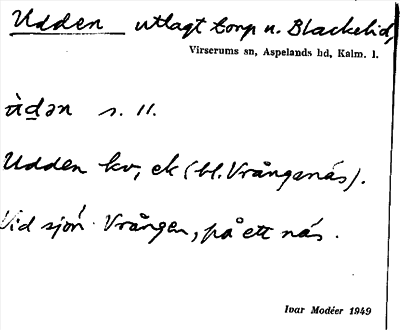 Udden utlagt torp u. Blackelid,
Virserums sn, Aspelands hd, Kalm. l.
ùdən s. 11.
Udden kv, ek (bl. Vrångenäs).
Vid sjön Vrången, på ett näs.
Ivar Modéer 1949